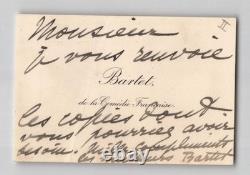 II
Monsieur
je vous renvoie
Bartet,
de la Comédie-Française.
les copies dont
vous pourriez avoir
besoin. Mille compliments
Bartet